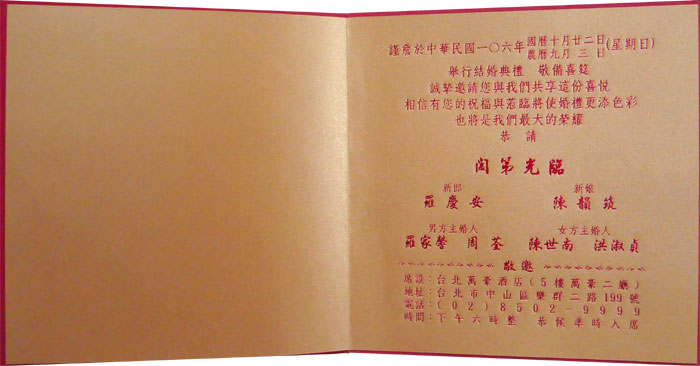 謹詹於中華民國一〇六年國曆十月廿二日(星期日)
農曆九月三日
舉行結婚典禮 敬備喜筵
誠摯邀請您與我們共享這份喜悅
相信有您的祝福與蒞臨將使婚禮更添色彩
也將是我們最大的榮耀
恭 請
闔第光臨
新郎 新娘
羅慶安 陳韻筑
男方主婚人 女方主婚人
羅家馨 周荃 陳世南 洪淑貞
敬邀
席設:台北萬豪酒店(5樓萬豪二廳)
地址:台北市中山區樂群二路199號
電話:(02)8502-9999
時間:下午六時整 恭候準時入席